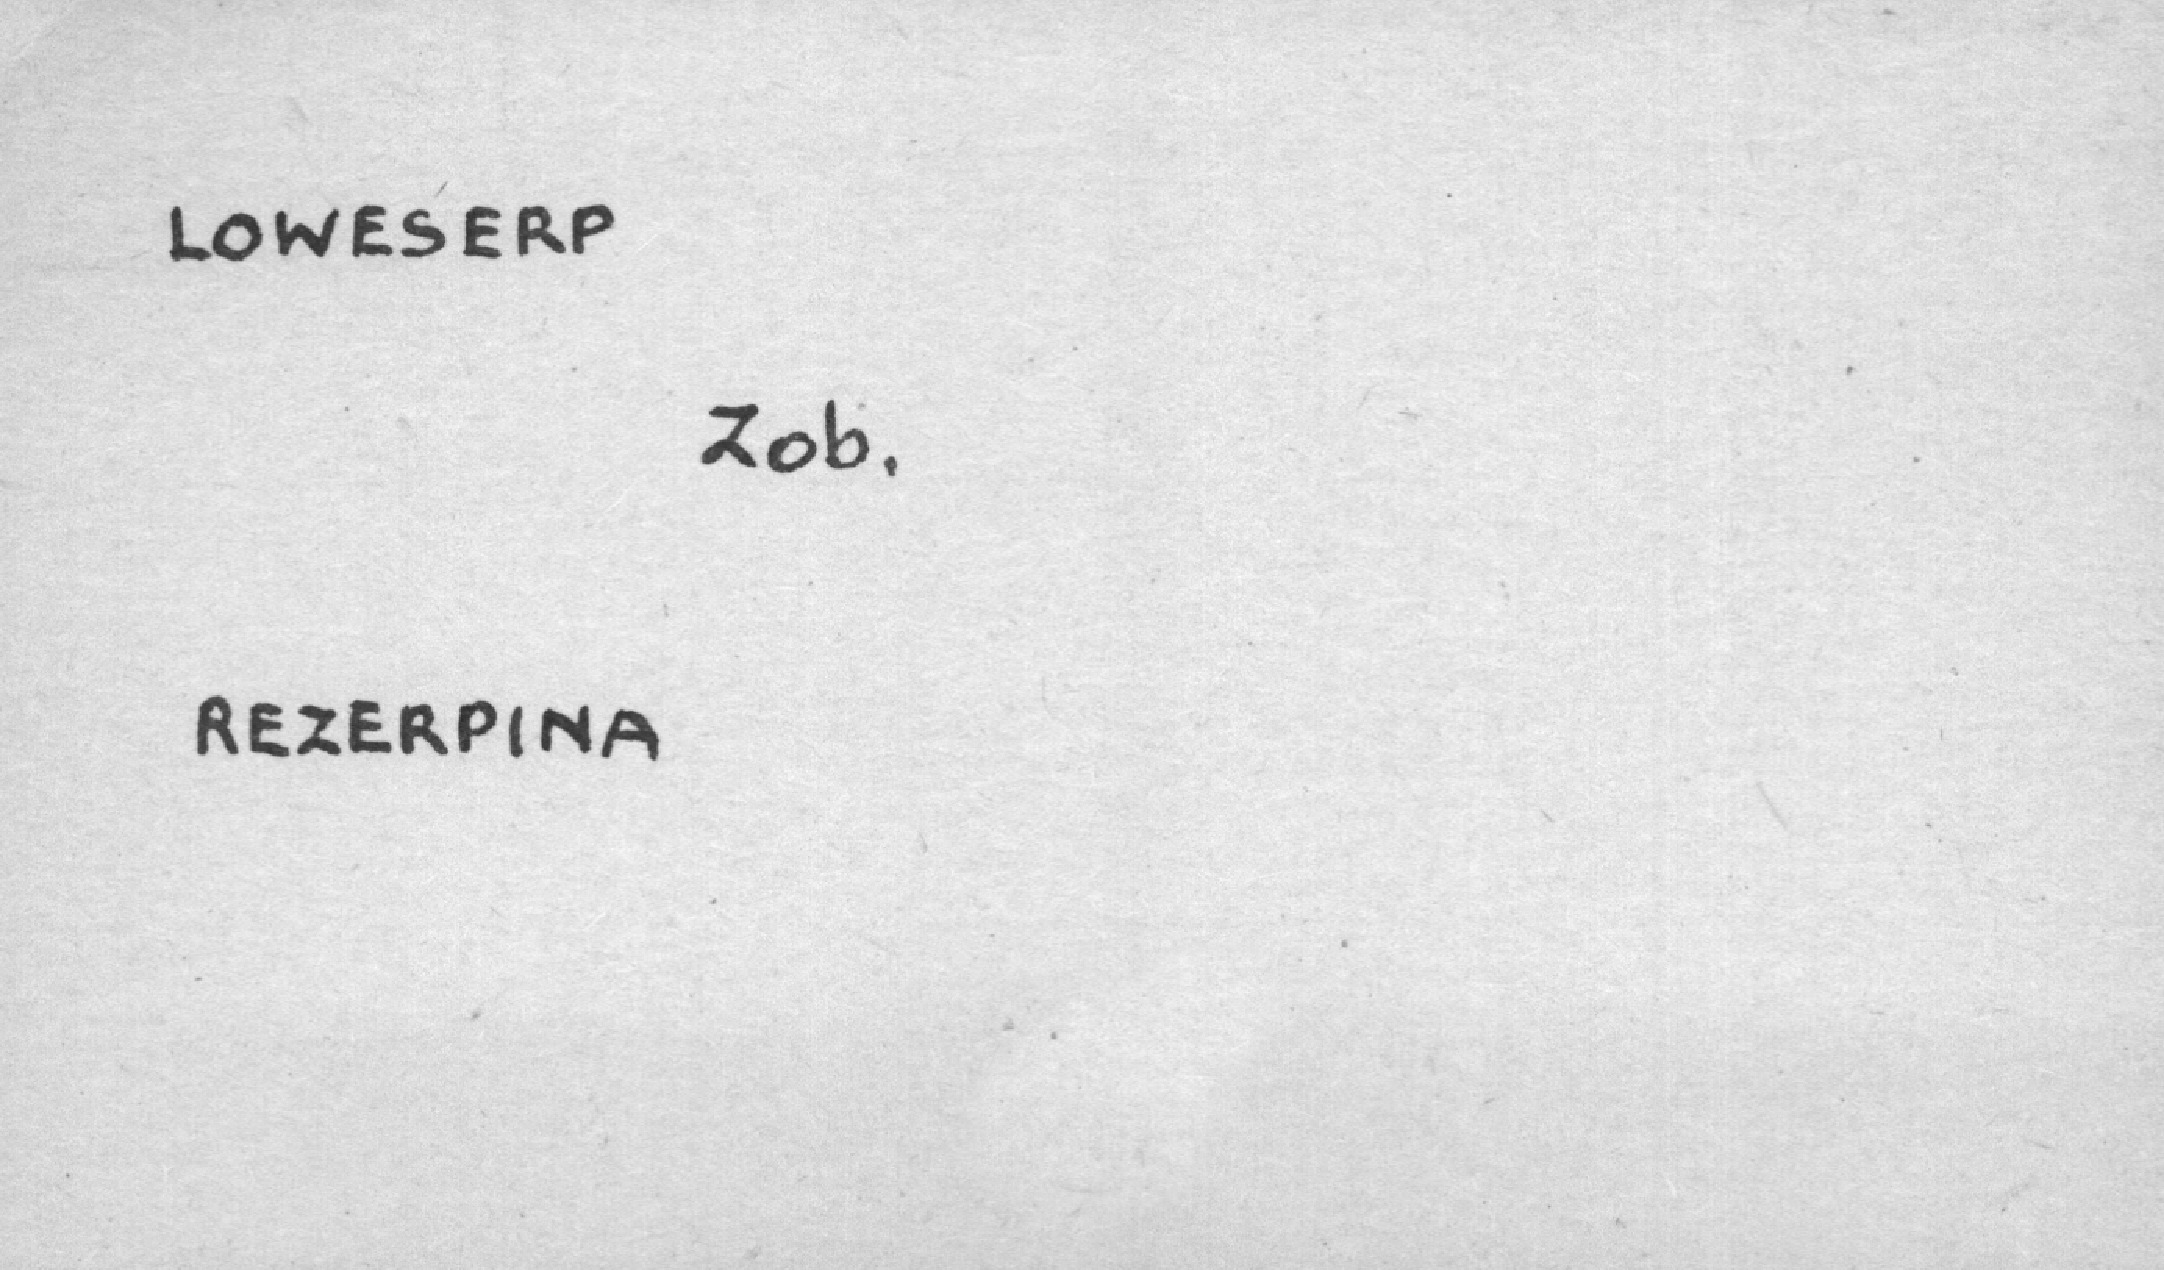 LOWESERP
Zob.
REZERPINA